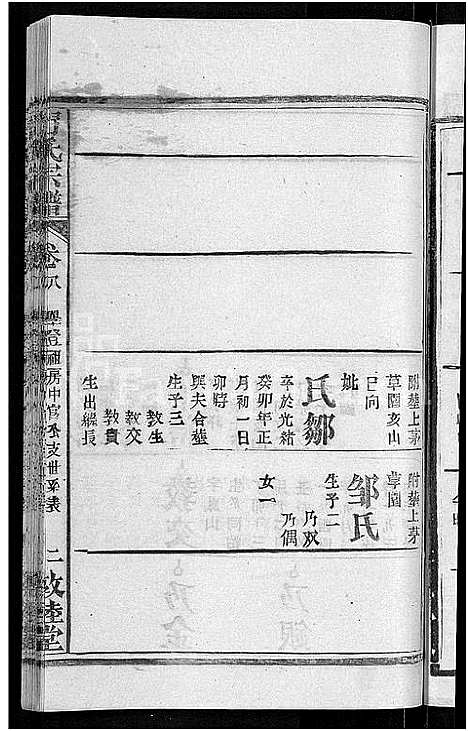 附葬上茅
草園亥山
巳向
妣
鄒氏
卒於光緒
癸卯年正
月初一日
卯時
與夫合葬
生子三
教生
教交
教貴
生出繼長
附葬上茅
草園
鄒氏
生子二
乃双
乃偶
女一
氏宗譜
卷之八
房中官永支世系表
二
敦睦堂